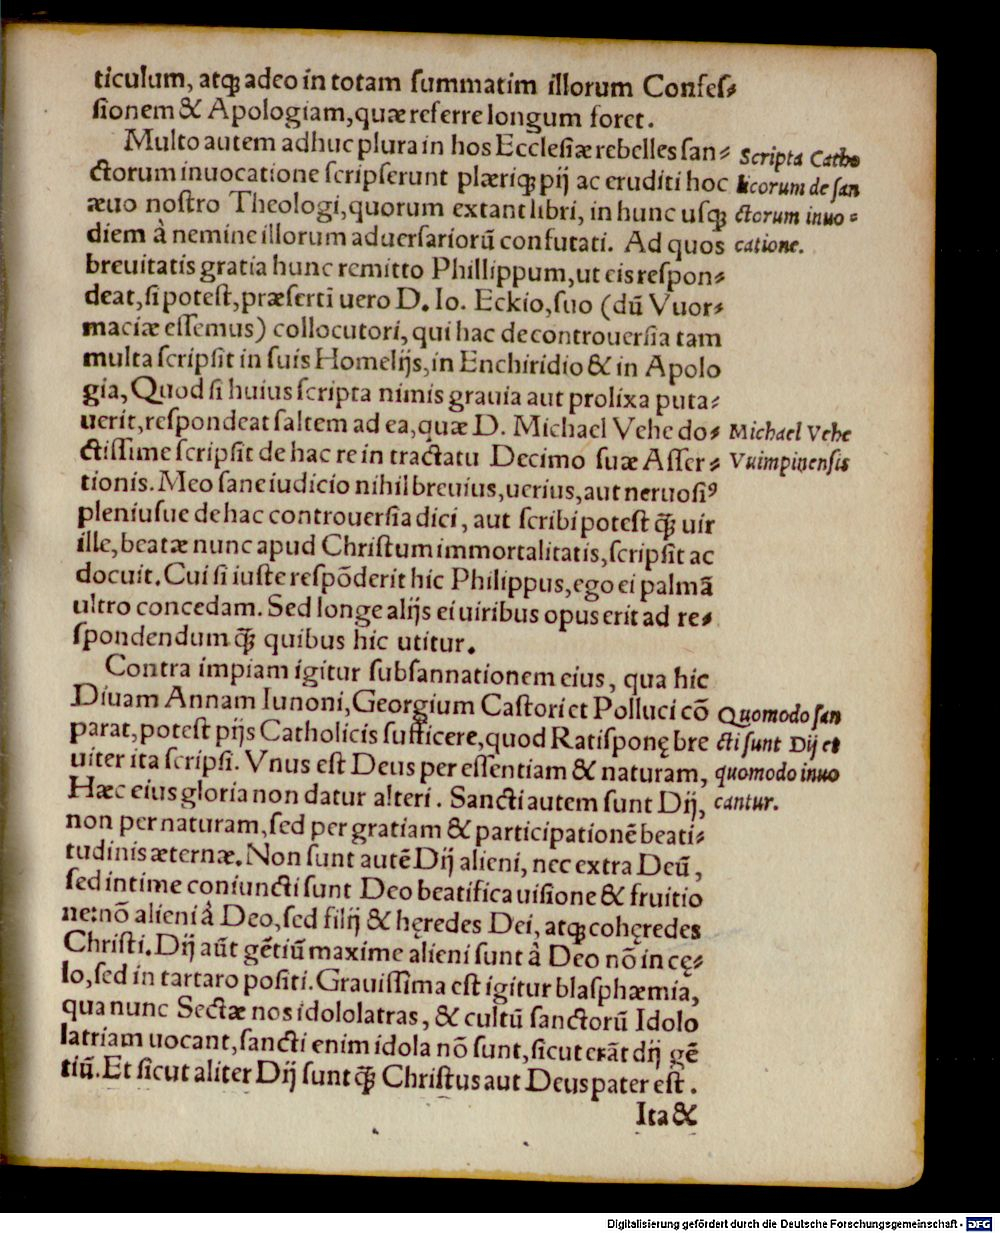 ticulum, atq́ꝫ adeo in totam ſummatim illorum Confeſ⸗
ſionem & Apologiam, quæ referre longum foret.
Multo autem adhuc plura in hos Eccleſiæ rebelles ſan⸗
ctorum inuocatione ſcripſerunt plæriq́ꝫ pij ac eruditi hoc
æuo noſtro Theologi, quorum extant libri, in hunc uſq́ꝫ
diem à nemine illorum aduerſariorū confutati. Ad quos
breuitatis gratia hunc remitto Phillippum, ut eis reſpon⸗
deat, ſi poteſt, præſertī uero D. Io. Eckio, ſuo (dū Vuor⸗
maciæ eſſemus) collocutori, qui hac de controuerſia tam
multa ſcripſit in ſuis Homelijs, in Enchiridio & in Apolo
gia, Quod ſi huius ſcripta nimis grauia aut prolixa puta⸗
uerit, reſpondeat ſaltem ad ea, quæ D. Michael Vehe do⸗
ctiſſime ſcripſit de hac re in tractatu Decimo ſuæ Aſſer⸗
tionis. Meo ſane iudicio nihil breuius, uerius, aut neruoſiꝰ
pleniuſue de hac controuerſia dici, aut ſcribi poteſt q̄ꝫ uir
ille, beatæ nunc apud Chriſtum immortalitatis, ſcripſit ac
docuit. Cui ſi iuſte reſpōderit hic Philippus, ego ei palmā
ultro concedam. Sed longe alijs ei uiribus opus erit ad re⸗
ſpondendum q̄ꝫ quibus hic utitur.
Contra impiam igitur ſubſannationem eius, qua hic
Diuam Annam Iunoni, Georgium Caſtori et Polluci cō
parat, poteſt pijs Catholicis ſufficere, quod Ratiſponę bre
uiter ita ſcripſi. Vnus eſt Deus per eſſentiam & naturam,
Hæc eius gloria non datur alteri. Sancti autem ſunt Dij,
non per naturam, ſed per gratiam & participationē beati⸗
tudinis æternæ. Non ſunt autē Dij alieni, nec extra Deū,
ſed intime coniuncti ſunt Deo beatifica uiſione & fruitio
ne: nō alieni à Deo, ſed filij & hęredes Dei, atq́ꝫ cohęredes
Chriſti. Dij aūt gētiū maxime alieni ſunt à Deo nō in cę⸗
lo, ſed in tartaro poſiti. Grauiſſima eſt igitur blaſphæmia,
qua nunc Sectæ nos idololatras, & cultū ſanctorū Idolo
latriam uocant, ſancti enim idola nō ſunt, ſicut erāt dij gē
tiū. Et ſicut aliter Dij ſunt q̄ꝫ Chriſtus aut Deus pater eſt.
Ita &
Scripta Catho
licorum de ſan
ctorum inuo⸗
catione.
Michael Vehe
Vuimpinenſis
Quomodo ſan
cti ſunt Dij et
quomodo inuo
cantur.
Digitalisierung gefördert durch die Deutsche Forschungsgemeinschaft - DFG